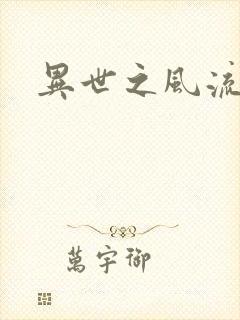 異世之風流
萬宇御